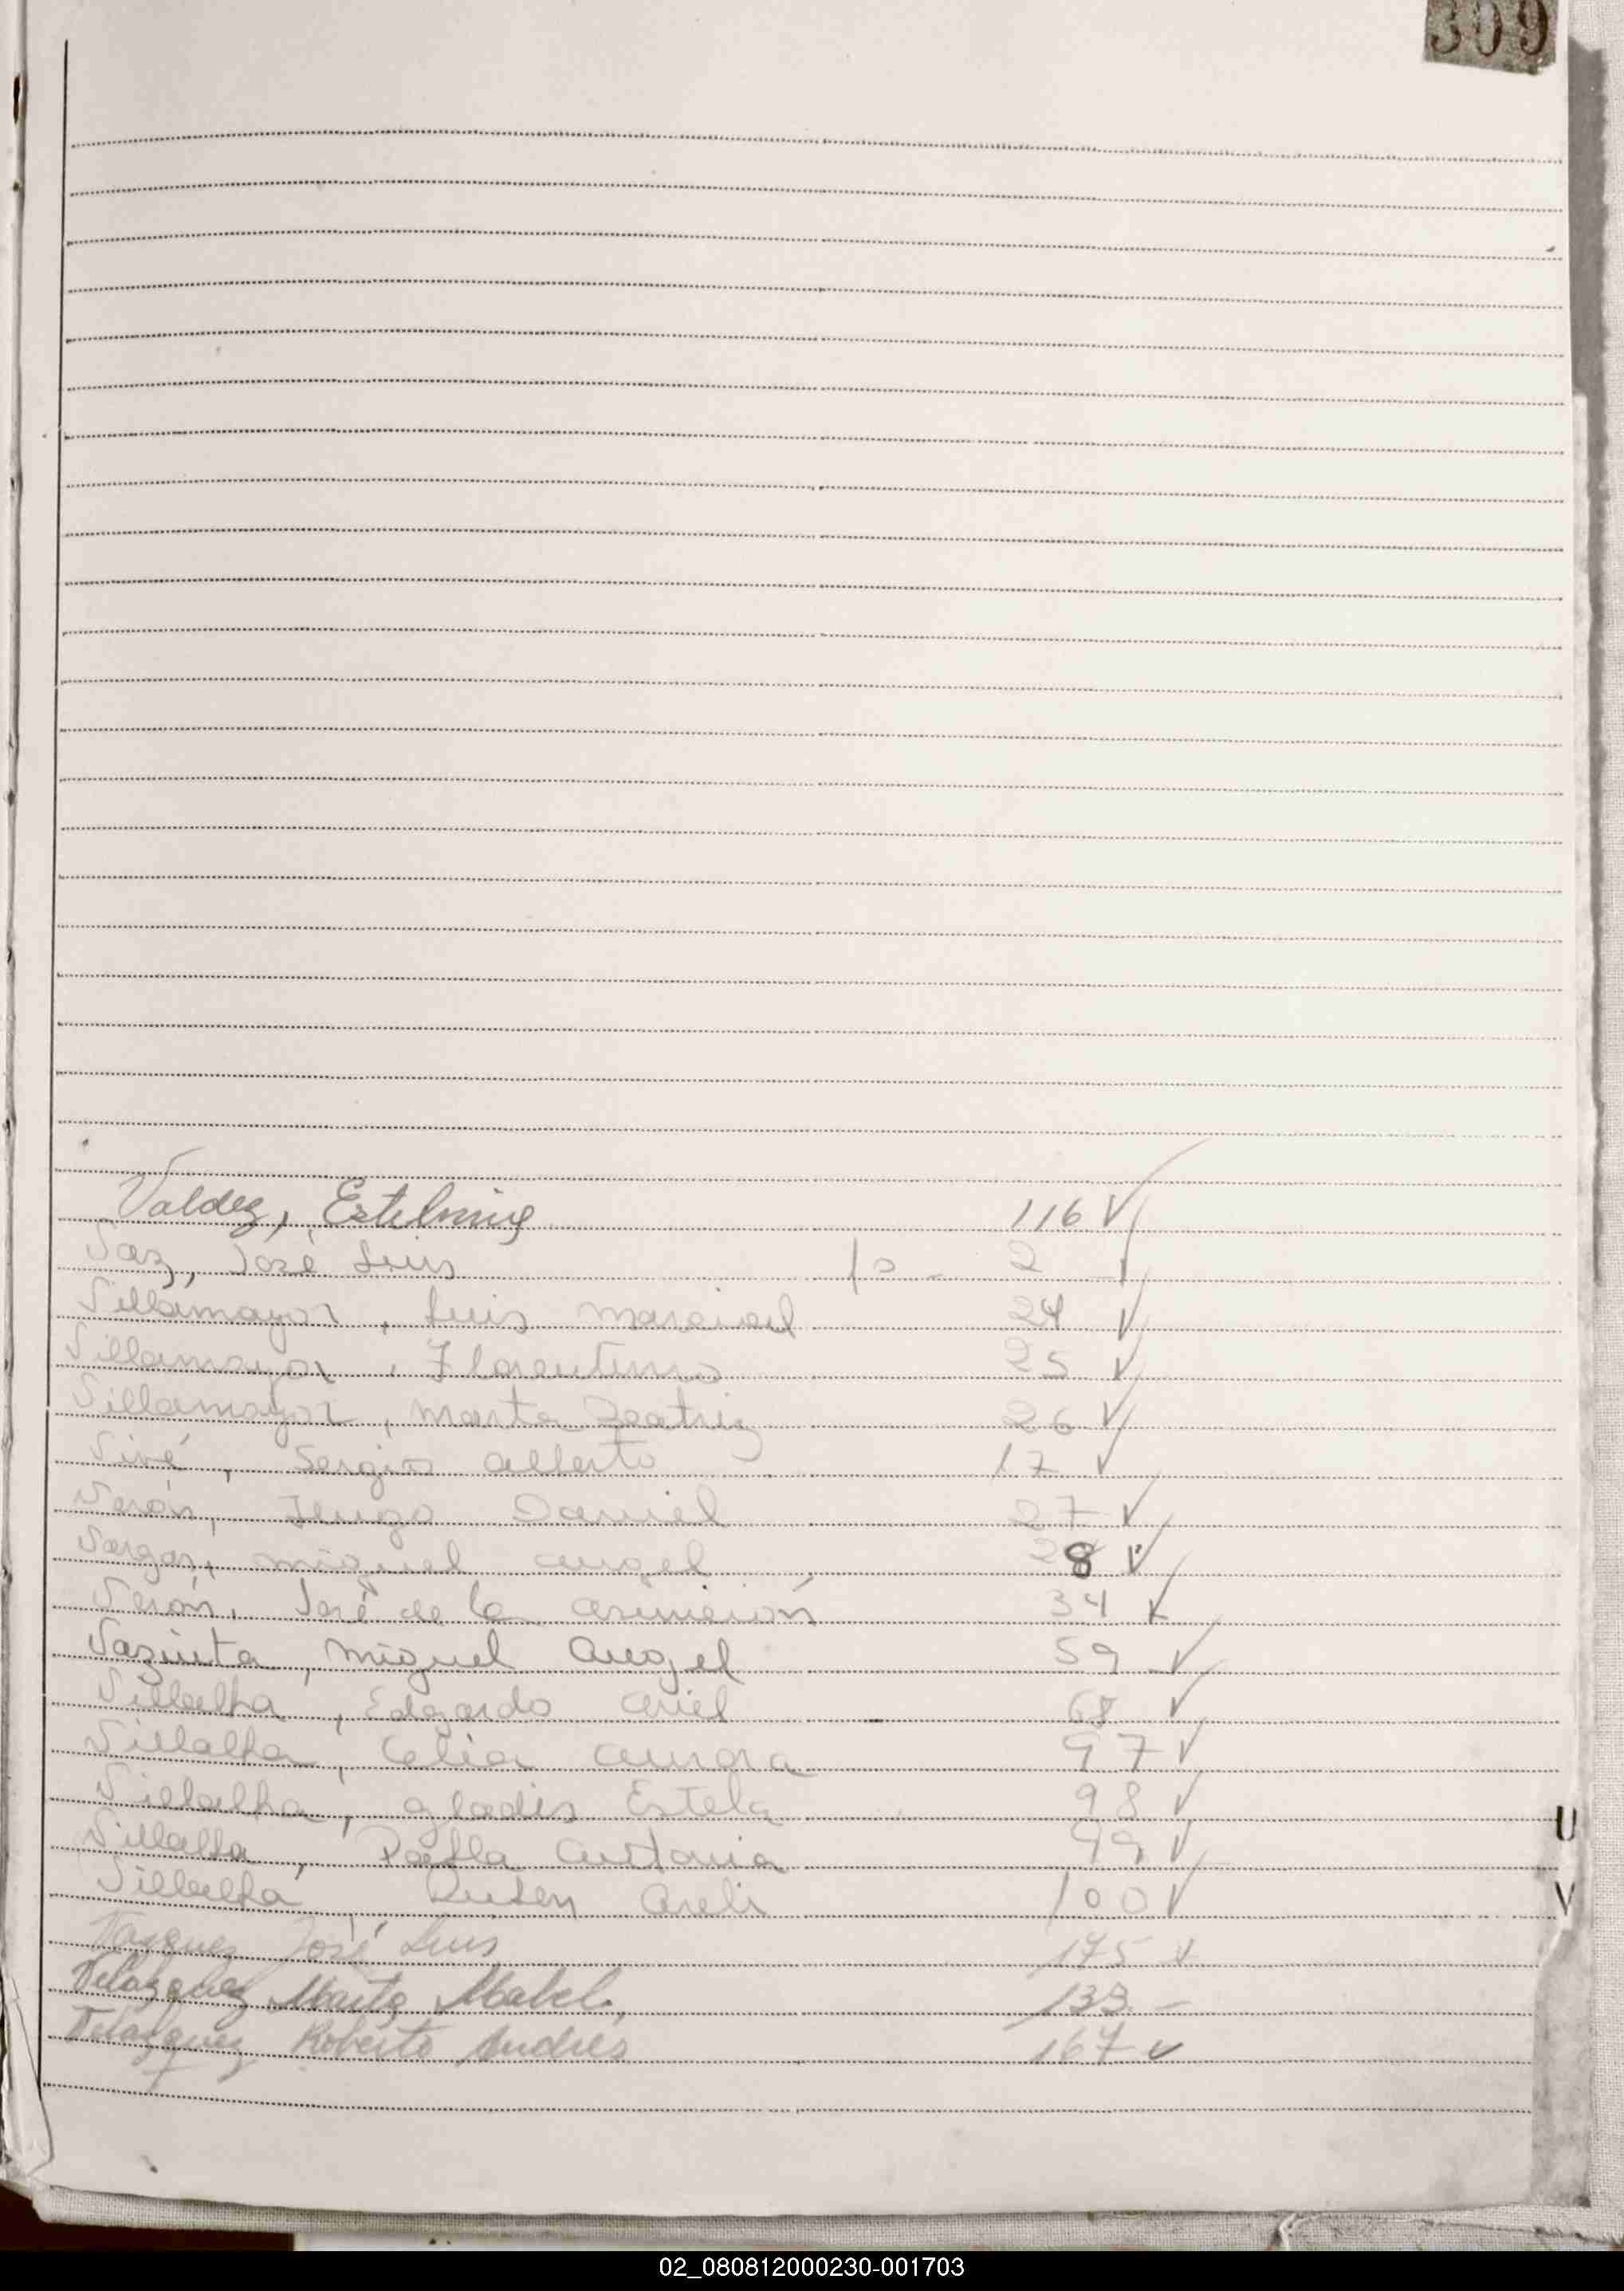 309
Valdez, Estelmig 116 ✓
Vaz, José Luis fo - 2 ✓
Villamayor, Luis Marcial 24 ✓
Villamayor, Florentino 25 ✓
Villamayor, Marta Beatriz 26 ✓
Vivé, Sergio Alberto 17 ✓
Verón, Hugo Daniel 27 ✓
Vargas, Miguel Angel 28 ✓
Verón, José de la Asunción 34 ✓
Miguel Angel 59 ✓
Villalba, Edgardo Ariel 68 ✓
Villalba, Celia Aurora 97 ✓
Villalba, Gladis Estela 98 ✓
U
Villalba, 99 ✓
Villalba, Ruben 100 ✓
V
Vasquez José Luis 175 ✓
Velazquez Marta Mabel. 133 -
Velazquez Roberto Andres 167 ✓
02_080812000230-001703